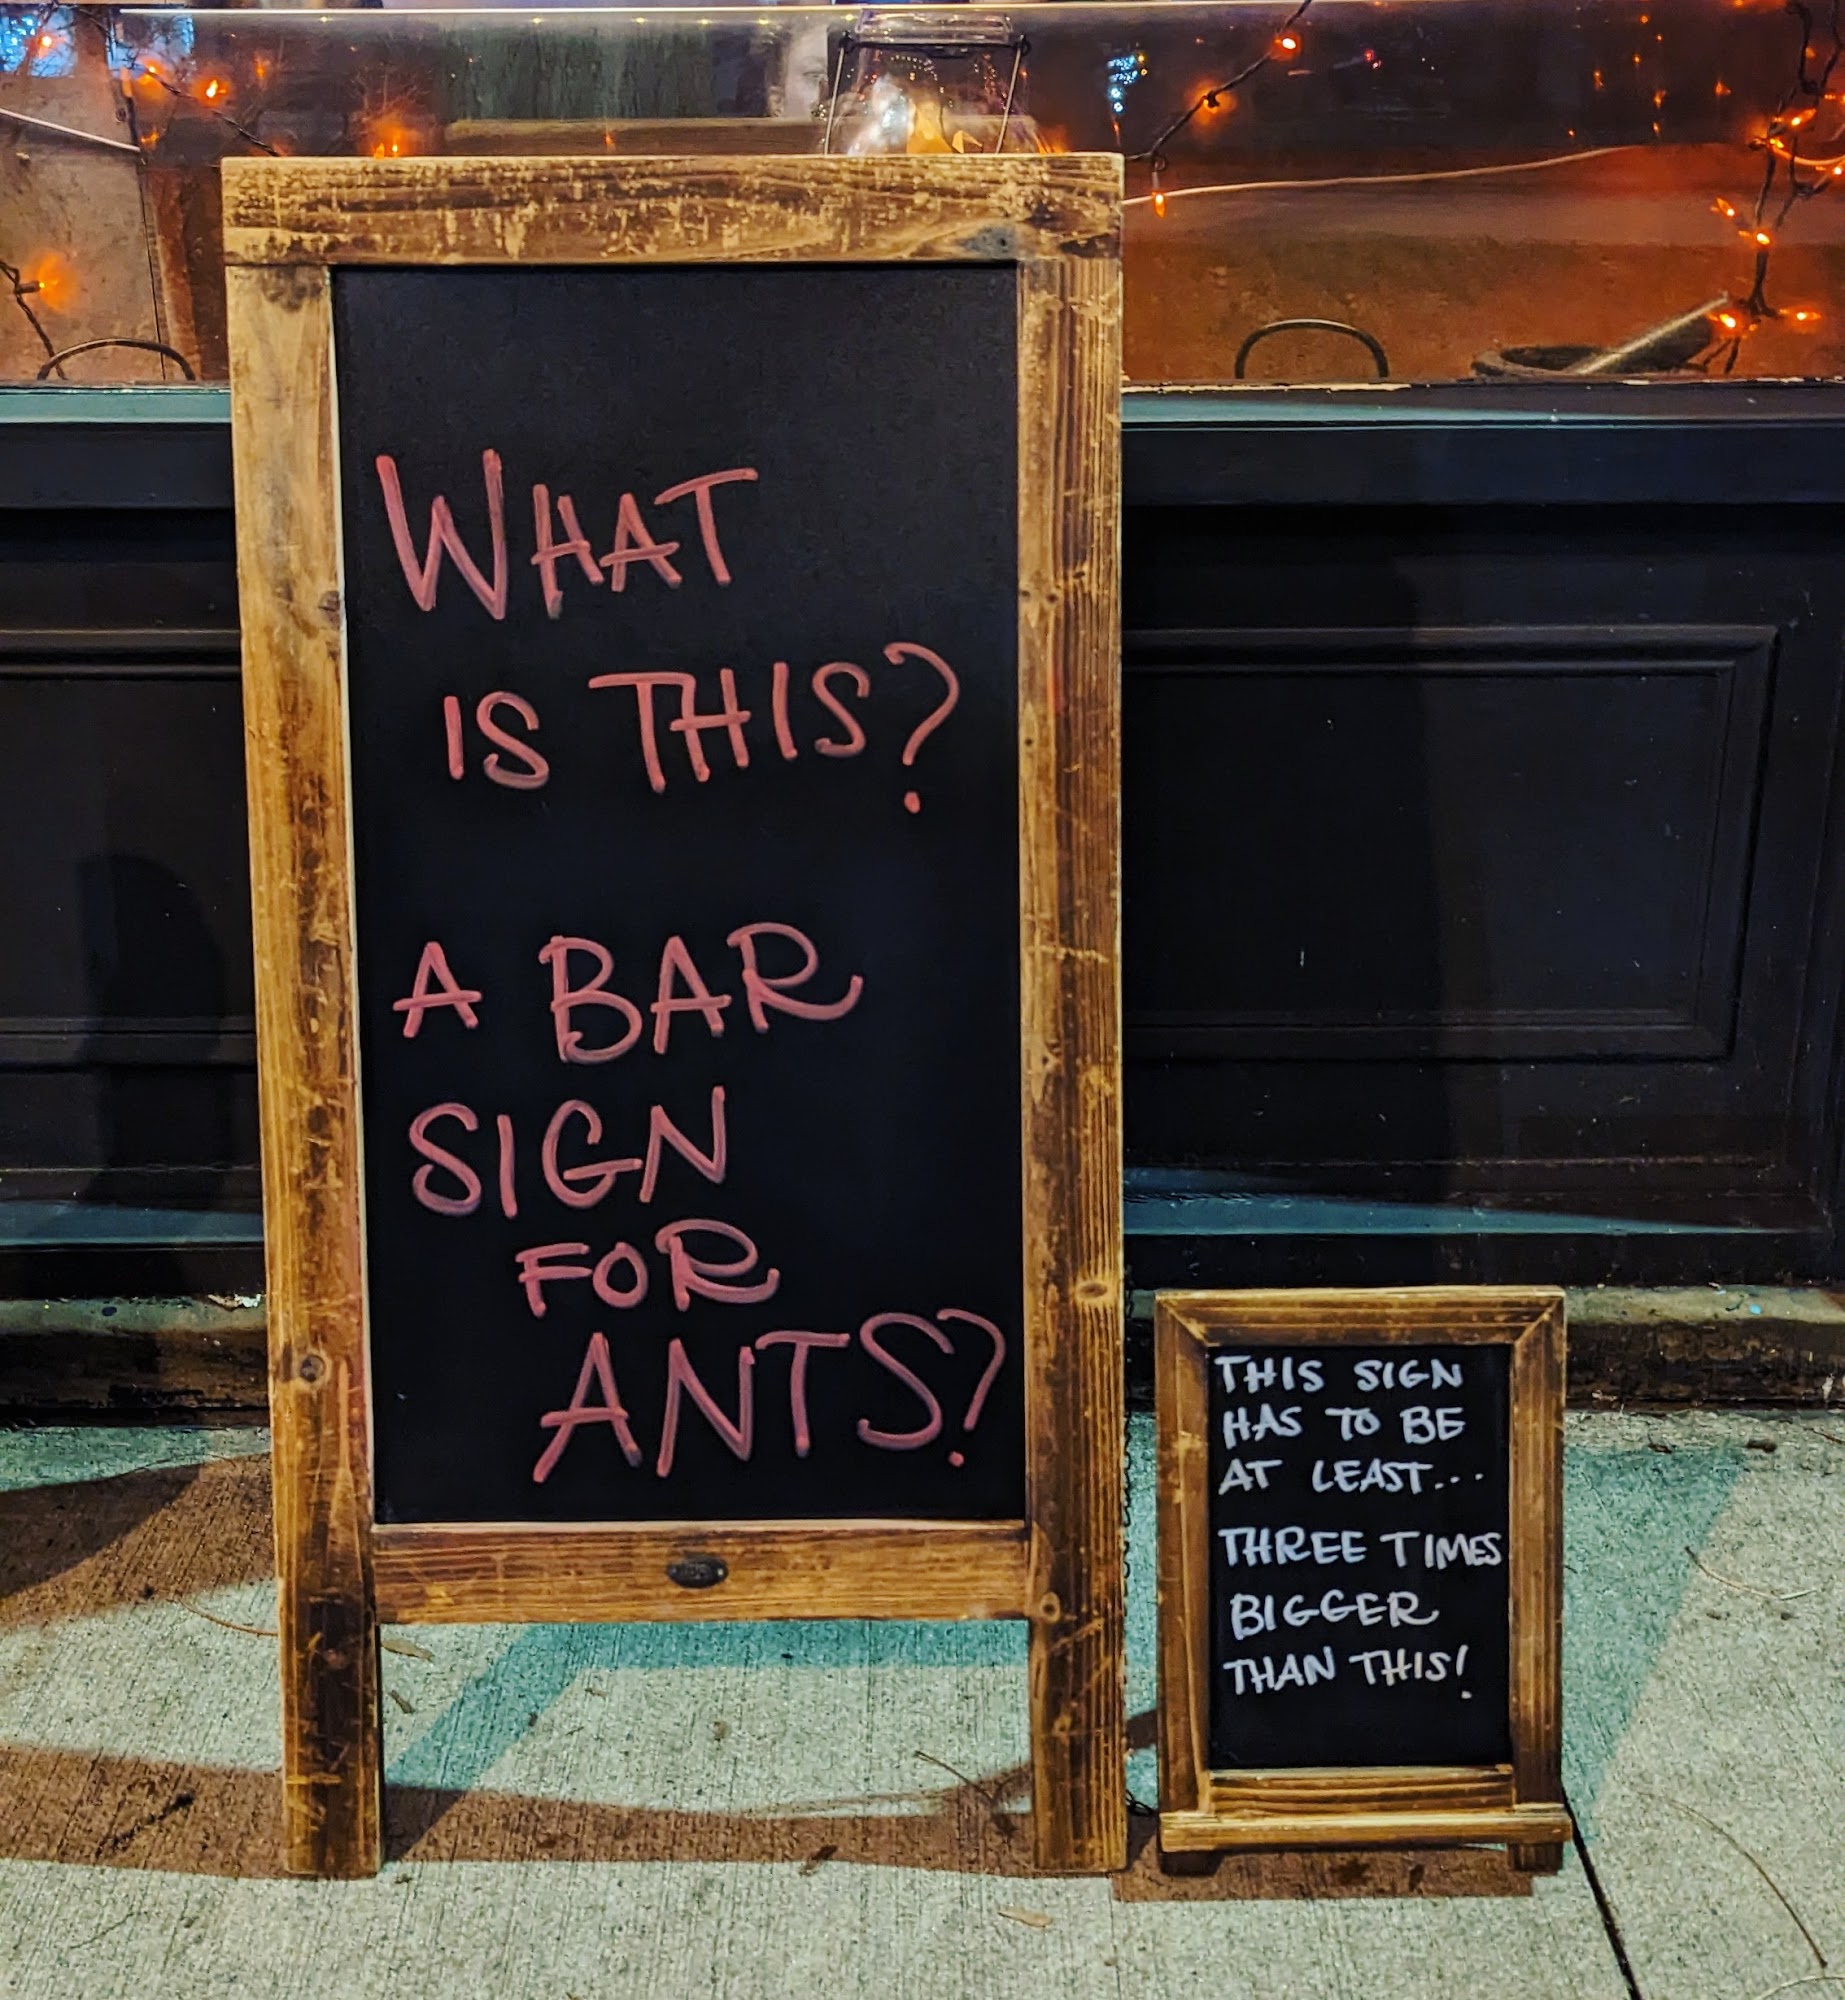 WHAT
IS THIS?
A BAR
SIGN
FOR
ANTS?
THIS SIGN
HAS TO BE
AT LEAST...
THREE TIMES
BIGGER
THAN THIS!